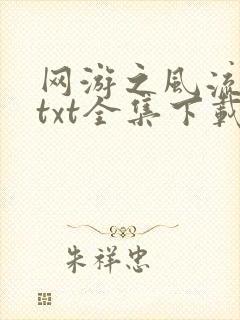 网游之风流
txt全集下载
朱祥忠